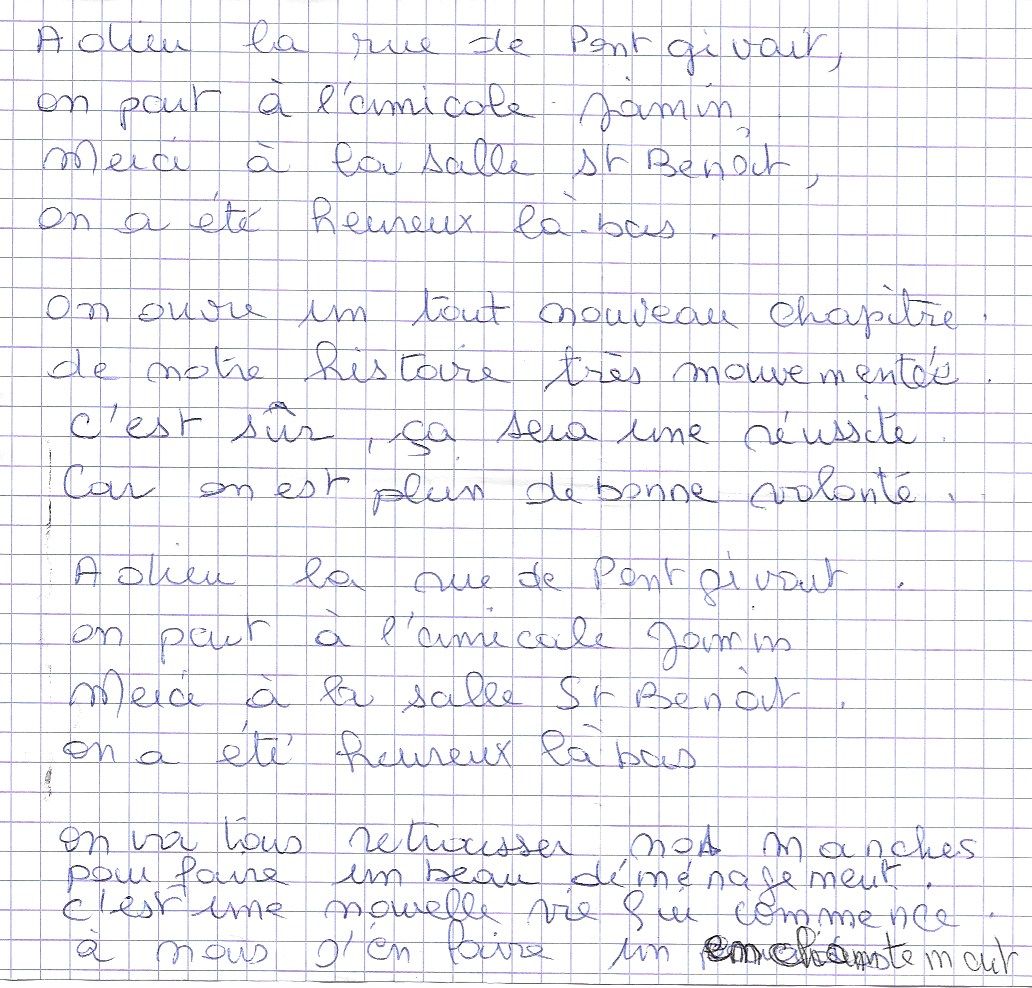 Adieu la rue de Pont givart,
on part à l'amicale Jamin,
Merci à la salle St Benoit,
on a été heureux là-bas.
on ouvre un tout nouveau chapître.
de notre histoire très mouvementée.
c'est sûr, ça sera une réussite.
Car on est plein de bonne volonté.
Adieu la rue de Pont givart.
on part à l'amicale Jamin
Merci à la salle St Benoit.
on a été heureux là bas
on va tous retrousser nos manches
pour faire un beau déménagement.
c'est une nouvelle vie qui commence.
à nous d'en faire un enchantement